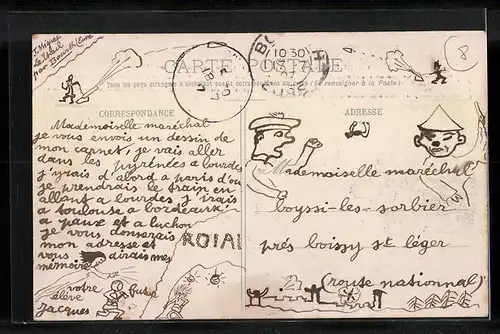 J. Miquet
le Héral
par Bourth (Eure)
10 30
17-7
8
CARTE POSTALE
Tous les pays étrangers n'acceptent pas la correspondance au recto (Se renseigner à la Poste)
CORRESPONDANCE
Mademoiselle maréchal
je vous envois un dessin de
mon carnet, je vais aller
dans les pyrénées a lourdes
j'yrais d'abord a paris d'ou
je prendrais le train en
allant a lourdes j'irais
a toulouse a bordeaux
a paux et a luchon
je vous donnerais
mon adresse et
vous dirais mes
mémoires
votre futur
élève
Jacques
ROIAL
ADRESSE
Mademoiselle maréchal
boyssi-les-sorbier
prés boissy st léger
(route nationnal)